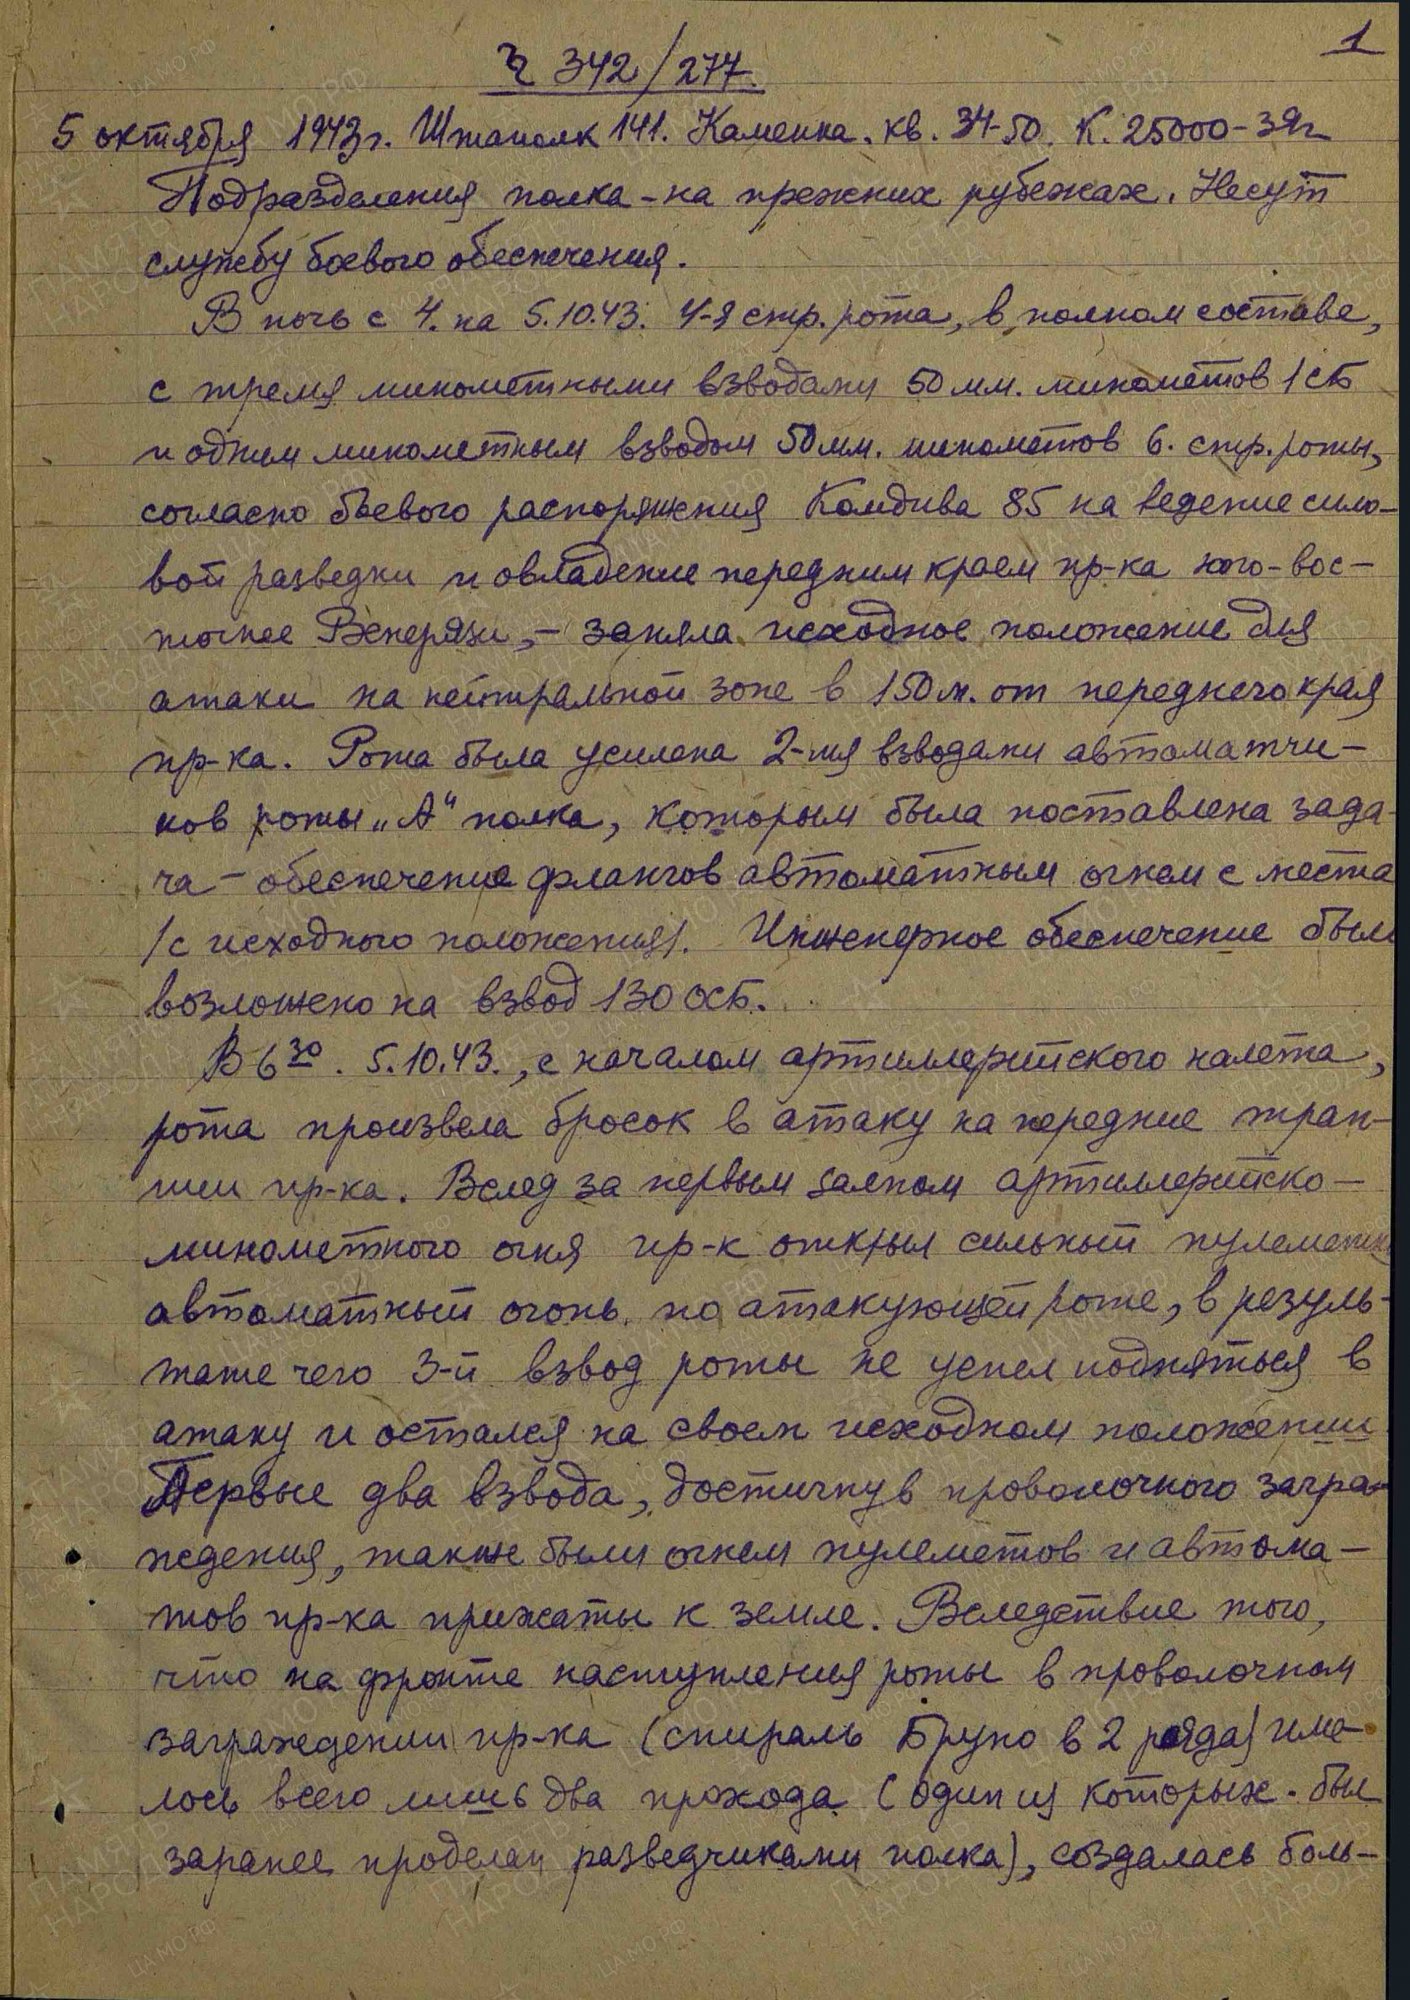 1
342/277.
5 октября 1943г. Штаполк 141. Каменка. кв. 34-50. К. 25000-39г
Подразделения полка - на прежних рубежах. Несут
службу боевого обеспечения.
В ночь с 4. на 5.10.43. 4-я стр. рота, в полном составе,
с тремя минометными взводами 50 мм. минометов 1СБ
и одним минометным взводом 50 мм. минометов 6. стр. роты,
согласно боевого распоряжения Комдива 85 на ведение сило-
вой разведки и овладение передним краем пр-ка юго-вос-
точнее Вонерязи, - заняла исходное положение для
атаки на нейтральной зоне в 150 м. от переднего края
пр-ка. Рота была усилена 2-мя взводами автоматчи-
ков роты „А" полка, которым была поставлена зада-
ча - обеспечение флангов автоматным огнем с места
/с исходного положения/. Инженерное обеспечение было
возложено на взвод 130 ОСБ.
В 6 30. 5.10.43., с началом артиллерийского налета,
рота произвела бросок в атаку на передние тран-
шеи пр-ка. Вслед за первым залпом артиллерийско-
минометного огня пр-к открыл сильный пулеметно
автоматный огонь по атакующей роте, в резуль-
тате чего 3-й взвод роты не успел подняться в
атаку и остался на своем исходном положении.
Первые два взвода, достигнув проволочного загра-
ждения, также были огнем пулеметов и автома-
тов пр-ка прижаты к земле. Вследствие того,
что на фронте наступления роты в проволочном
заграждении пр-ка (спираль Бруно в 2 ряда) име-
лось всего лишь два прохода (один из которых был
заранее проделан разведчиками полка), создалась боль-
ЦАМО РФ
ПАМЯТЬ НАРОДА